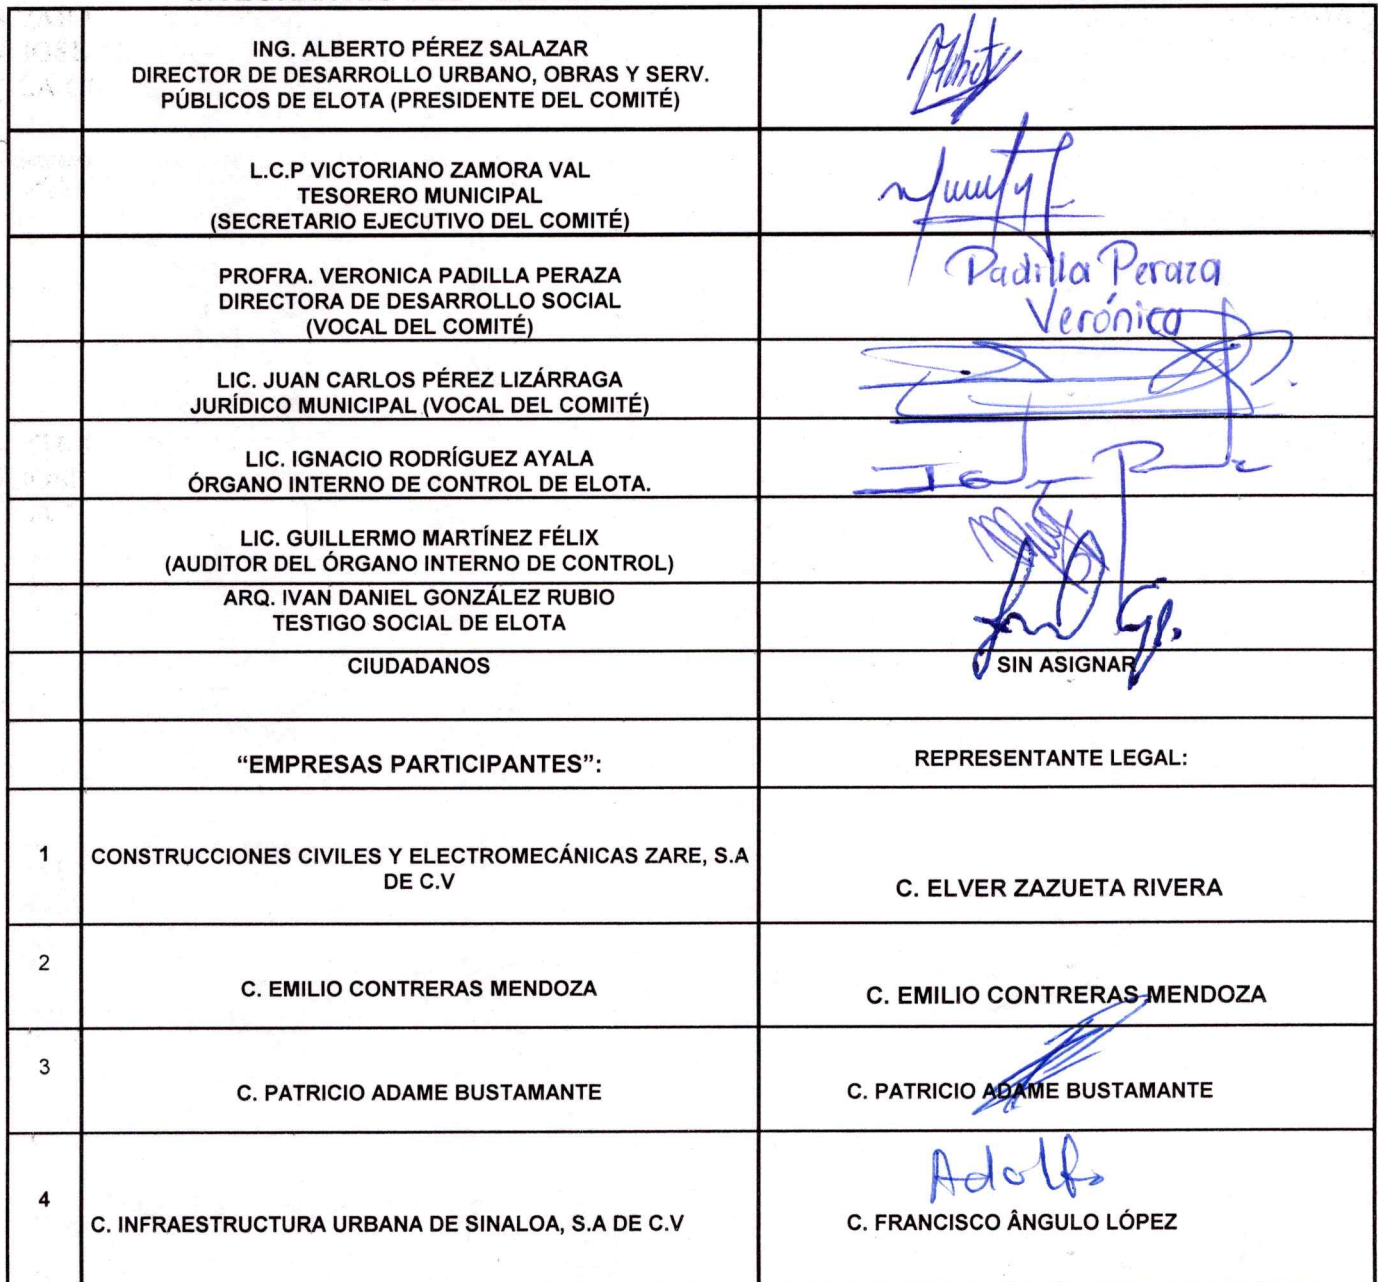 ING. ALBERTO PÉREZ SALAZAR
DIRECTOR DE DESARROLLO URBANO, OBRAS Y SERV.
PÚBLICOS DE ELOTA (PRESIDENTE DEL COMITÉ)
L.C.P VICTORIANO ZAMORA VAL
TESORERO MUNICIPAL
(SECRETARIO EJECUTIVO DEL COMITÉ)
PROFRA. VERONICA PADILLA PERAZA
DIRECTORA DE DESARROLLO SOCIAL
(VOCAL DEL COMITÉ)
Padilla Peraza
Verónica
LIC. JUAN CARLOS PÉREZ LIZÁRRAGA
JURÍDICO MUNICIPAL (VOCAL DEL COMITÉ)
LIC. IGNACIO RODRÍGUEZ AYALA
ÓRGANO INTERNO DE CONTROL DE ELOTA.
LIC. GUILLERMO MARTÍNEZ FÉLIX
(AUDITOR DEL ÓRGANO INTERNO DE CONTROL)
ARQ. IVAN DANIEL GONZÁLEZ RUBIO
TESTIGO SOCIAL DE ELOTA
CIUDADANOS
SIN ASIGNAR
“EMPRESAS PARTICIPANTES”:
REPRESENTANTE LEGAL:
1
CONSTRUCCIONES CIVILES Y ELECTROMECÁNICAS ZARE, S.A
DE C.V
C. ELVER ZAZUETA RIVERA
2
C. EMILIO CONTRERAS MENDOZA
C. EMILIO CONTRERAS MENDOZA
3
C. PATRICIO ADAME BUSTAMANTE
C. PATRICIO ADAME BUSTAMANTE
4
C. INFRAESTRUCTURA URBANA DE SINALOA, S.A DE C.V
Adolfo
C. FRANCISCO ÂNGULO LÓPEZ